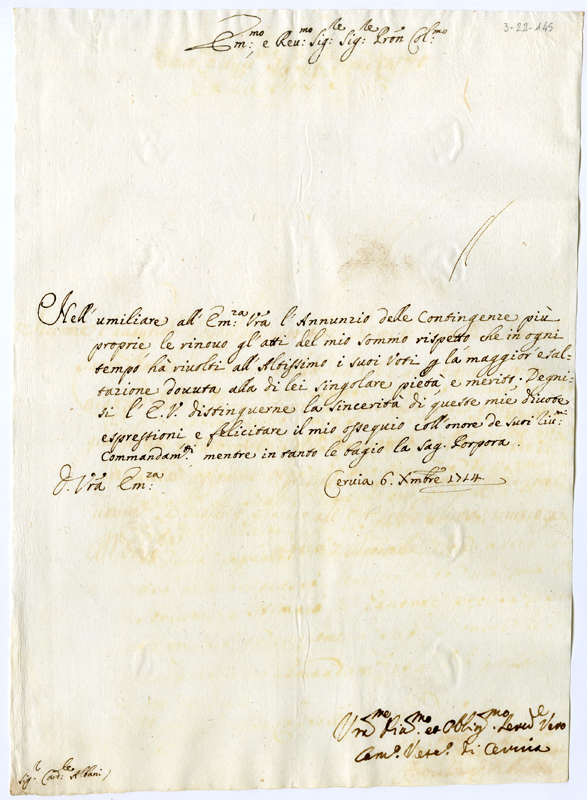 3-22-145
Em:mo e Reu:mo Sig:le Sig:le Pron Col:mo
Nell'umiliare all'Em:za Vra l'Annunzio delle Contingenze più
proprie le rinovo gl'atti del mio sommo rispetto che in ogni
tempo hà riuolti all'Altissimo i suoi Voti p la maggior esal-
tazione douuta alla di lei singolare pietà e merito. Degni-
si l'E.V. distinguerne la sincerità di queste mie diuote
espressioni e felicitare il mio ossequio coll'onore de suoi
Commandam:ti, mentre in tanto le bagio la Sag. Porpora.
D. Vra Em:za
Ceruia 6. Xmbre 1714.
et Oblig:mo Vero
Vesc:o di Ceruia
Sig:r Card:le Albani